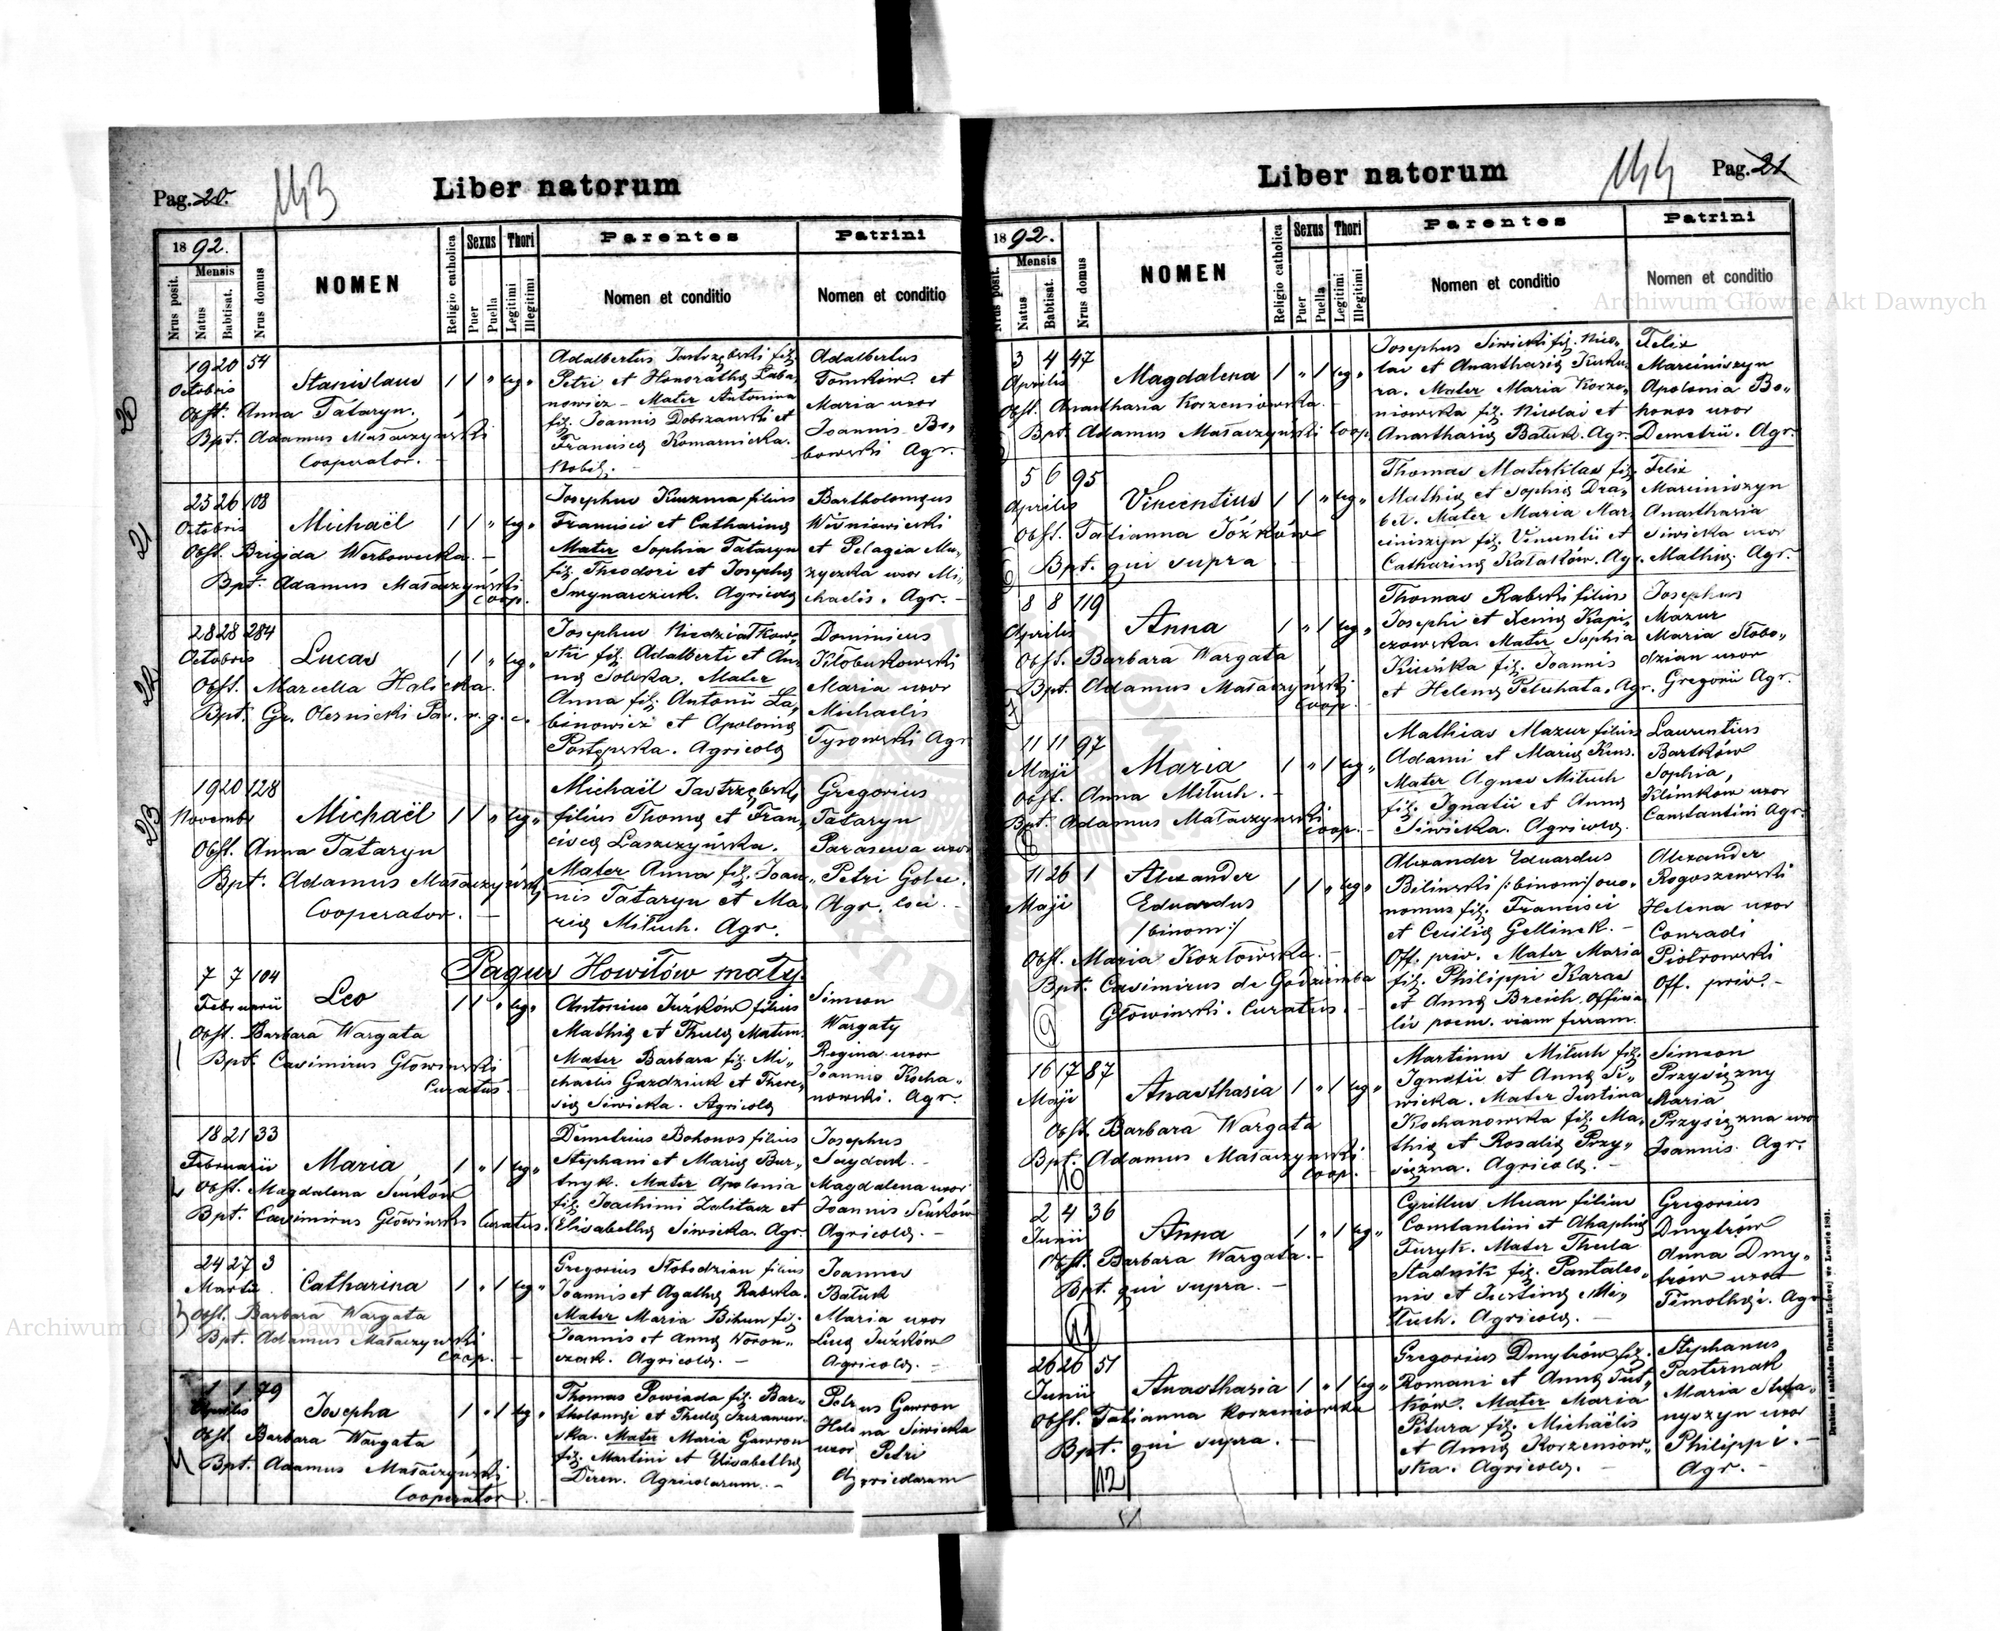 Pag. 20. 143 Liber natorum
1892.
Nrus posit.
Mensis
Natus
Babtisat.
Nrus domus
NOMEN
Religio catholica
Sexus
Puer
Puella
Thori
Legitimi
Illegitimi
Parentes
Nomen et conditio
Patrini
Nomen et conditio
20
19 20 54
Octobris
Stanislaus 1 1 " leg "
Obst. Anna Tataryn.
Bpt. Adamus Małaczyński
Cooperator.
Adalbertus Jastrzębski fil.
Petri et Honorathę Łaba
nowicz - Mater Antonina
fil. Joannis Dobrzański et
Franciscę Komarnicka.
Nobil.
Adalbertus
Tomków et
Maria uxor
Joannis Bo-
bowski Agr.
21
25 26 108
Octobris
Michaël 1 1 " leg "
Obst. Brigida Werbowecka. -
Bpt. Adamus Małaczyński
Coop.
Josephus Kuzma filius
Francisci et Catharinę
Mater Sophia Tataryn
fil. Theodori et Josephę
Smynarczuk. Agricolę
Bartholomęus
Wiśniowiecki
et Pelagia Mu-
zyczka uxor Mi
chaelis. Agr. -
22
28 28 284
Octobris
Lucas 1 1 " leg "
Obst. Marcella Halicka.
Bpt. Gr. Oleznicki Par. r. g. c.
Josephus Niedziałkow-
ski fil. Adalberti et An-
nę Solska. Mater
Anna fil. Antonii Ła-
binowicz et Apolonię
Postępska. Agricolę
Dominicus
Kłobukowski
Maria uxor
Michaelis
Tysowski Agr
23
19 20 128
Novembr
Michaël 1 1 " leg "
Obst. Anna Tataryn
Bpt. Adamus Małaczyński
Cooperator. -
Michaël Jastrzębski
filius Thomę et Fran-
ciscę Łaszczyńska.
Mater Anna fil. Joan-
nis Tataryn et Ma-
rię Miluch. Agr.
Gregorius
Tataryn
Parascwa uxor
Petri Golec.
Agr. loci. -
Pagus Howiłów mały.
1
7 7 104
Februarii
Leo 1 1 " leg "
Obst. Barbara Wargata
Bpt. Casimirus Głowinski
Curatus -
Antonius Juzków filius
Mathię et Theclę
Mater Barbara fil. Mi-
chaelis Gazdziuk et There-
się Siwicka. Agricolę
Simeon
Wargaty
Regina uxor
Joannis Kocha-
nowski. Agr.
2
18 21 33
Februarii
Maria 1 " 1 leg "
Obst. Magdalena Sińków
Bpt. Casimirus Głowinski Curatus.
Demetrius Bohonos filius
Stephani et Marię Bur-
tnyk. Mater Apolonia
fil. Joachimi Zalitacz et
Elisabethę Siwicka. Agr.
Josephus
Magdalena uxor
Joannis Sińków
Agricolę. -
3
24 27 3
Martii
Catharina 1 " 1 leg "
Obst. Barbara Wargata
Bpt. Adamus Małaczynski
Coop. -
Gregorius Słobodzian filius
Joannis et Agathę Rabska.
Mater Maria Bihun fil.
Joannis et Annę Woron-
czak. Agricolę. -
Joannes
Batuk
Maria uxor
Lucę Juzków
Agricolę. -
4
1 1 79
Aprilis
Josepha 1 " 1 leg "
Obst. Barbara Wargata
Bpt. Adamus Małaczyński
Cooperator. -
Thomas Powiada fil. Bar-
tholomęi et Theclę
ska. Mater Maria Gawron
fil. Martini et Elisabethę
Deren. Agricolarum. -
Petrus Gawron
Helena Siwicka
uxor Petri
Agricolarum
Liber natorum 144 Pag. 21
1892.
Nrus posit.
Mensis
Natus
Babtisat.
Nrus domus
NOMEN
Religio catholica
Sexus
Puer
Puella
Thori
Legitimi
Illegitimi
Parentes
Nomen et conditio
Patrini
Nomen et conditio
3 4 47
Aprilis
Magdalena 1 " 1 leg "
Obst. Anasthasia Korzeniowska.
Bpt. Adamus Małaczyński Coop.
Josephus Siwicki fil. Nico-
lai et Anasthasię Kuku-
ra. Mater Maria Korze-
niowska fil. Nicolai et
Anasthasię Batuk. Agr.
Felix
Marciniszyn
Apolonia Bo-
honos uxor
Demetrii. Agr.
5 6 95
Aprilis
Vincentius 1 1 " leg "
Obst. Tatianna Józków
Bpt. qui supra
6
Thomas fil.
Mathię et Sophię Dra-
bel. Mater Maria Mar
ciniszyn fil. Vincentii et
Catharinę Kałatków. Agr.
Felix
Marciniszyn
Anasthasia
Siwicka uxor
Mathię. Agr.
8 8 119
Aprilis
Anna 1 " 1 leg "
Obst. Barbara Wargata
Bpt. Adamus Małaczyński
Coop. -
7
Thomas Rabski filius
Josephi et Xenię Kapi-
czowska. Mater Sophia
fil. Joannis
et Helenę Petuhata. Agr.
Josephus
Mazur
Maria Słobo-
dzian uxor
Gregorii Agr.
11 11 97
Maji
Maria 1 " 1 leg "
Obst. Anna Miluch. -
Bpt. Adamus Małaczynski
Coop. -
8
Mathias Mazur filius
Adami et Marię Kus.
Mater Agnes Miluch
fil. Ignatii et Annę
Siwicka. Agricolę.
Laurentius
Bartków
Sophia,
Klimkow uxor
Constantini Agr.
11 26 1
Maji
Alexander
Eduardus
/binom:/
1 1 " leg "
Obst. Maria Kozłowska. -
Bpt. Casimirus de Godziemba
Głowinski. Curatus. -
9
Alexander Eduardus
Bilinski /:binom:/ oeco-
nomus fil. Francisci
et Cecilię Gellinek. -
Off. priv. Mater Maria
fil. Philippi Karas
et Annę Breich. Officia
lis poem. viam ferram.
Alexander
Rogoszewski
Helena uxor
Conradi
Piotrowski
Off. priv. -
16 17 87
Maji
Anasthasia 1 " 1 leg "
Obst. Barbara Wargata
Bpt. Adamus Małaczynski
Coop. -
10
Martinus Miluch fil.
Ignatii et Annę Si-
wicka. Mater Justina
Kochanowska fil. Ma-
thię et Rosalię Przy-
siężna. Agricolę. -
Simeon
Przysiężny
Maria
Przysiężna uxor
Joannis. Agr.
2 4 36
Junii
Anna 1 " 1 leg "
Obst. Barbara Wargata. -
Bpt. qui supra. -
11
Cyrillus Musan filius
Constantini et Ahaphię
Furyk. Mater Thecla
Stadnik fil. Pantaleo-
nis et Justinę Mi-
luch. Agricolę. -
Gregorius
Dmytrów
Anna Dmy-
trów uxor
Timothęi. Agr
26 26 51
Junii
Anasthasia 1 " 1 leg "
Obst. Tatianna Korzeniowska
Bpt. qui supra. -
12
Gregorius Dmytrów fil.
Romani et Annę Jus-
ków. Mater Maria
Pitura fil. Michaëlis
et Annę Korzeniow-
ska. Agricolę. -
Stephanus
Pasternak
Maria Stefa-
nyszyn uxor
Philippi. -
Agr. -
Drukiem i nakładem Drukarni Ludowej we Lwowie 1891.
Archiwum Główne Akt Dawnych
Archiwum Główne Akt Dawnych